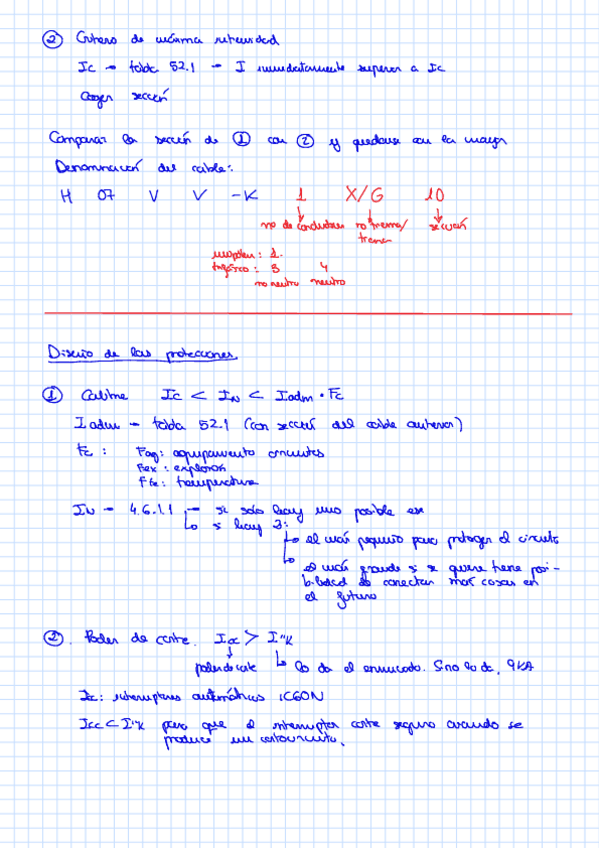 ② Criterio de máxima intensidad
Ic → tabla 52.1 → I inmediatamente superior a Ic
Coger sección
Comparar la sección de ① con ② y quedarse con la mayor
Denominación del cable:
H 07 V V -K 1 X/G 10
no de conductores no trema/ sección
trama
unipolar: 1.
trifásico: 3 4
no neutro neutro
Diseño de las protecciones.
① Calibre Ic < IN < Iadm · Fc
Iadm → tabla 52.1 (con sección del cable anterior)
Fc: Fag: agrupamiento circuitos
Fex: explosión
Fte: temperatura
IN → 4.6.1.1 → si solo hay uno posible ese
↳ si hay 3:
↳ el más pequeño para proteger el circuito
↳ el más grande si se quiere tiene posi-
bilidad de conectar más cosas en
el futuro
②. Poder de corte. Icc > I"k
poder de corte ↳ lo da el enunciado. Si no lo da, 9kA
Icc: interruptores automáticos iC60N
Icc < I"k para que el interruptor corte seguro cuando se
produce un cortocircuito.